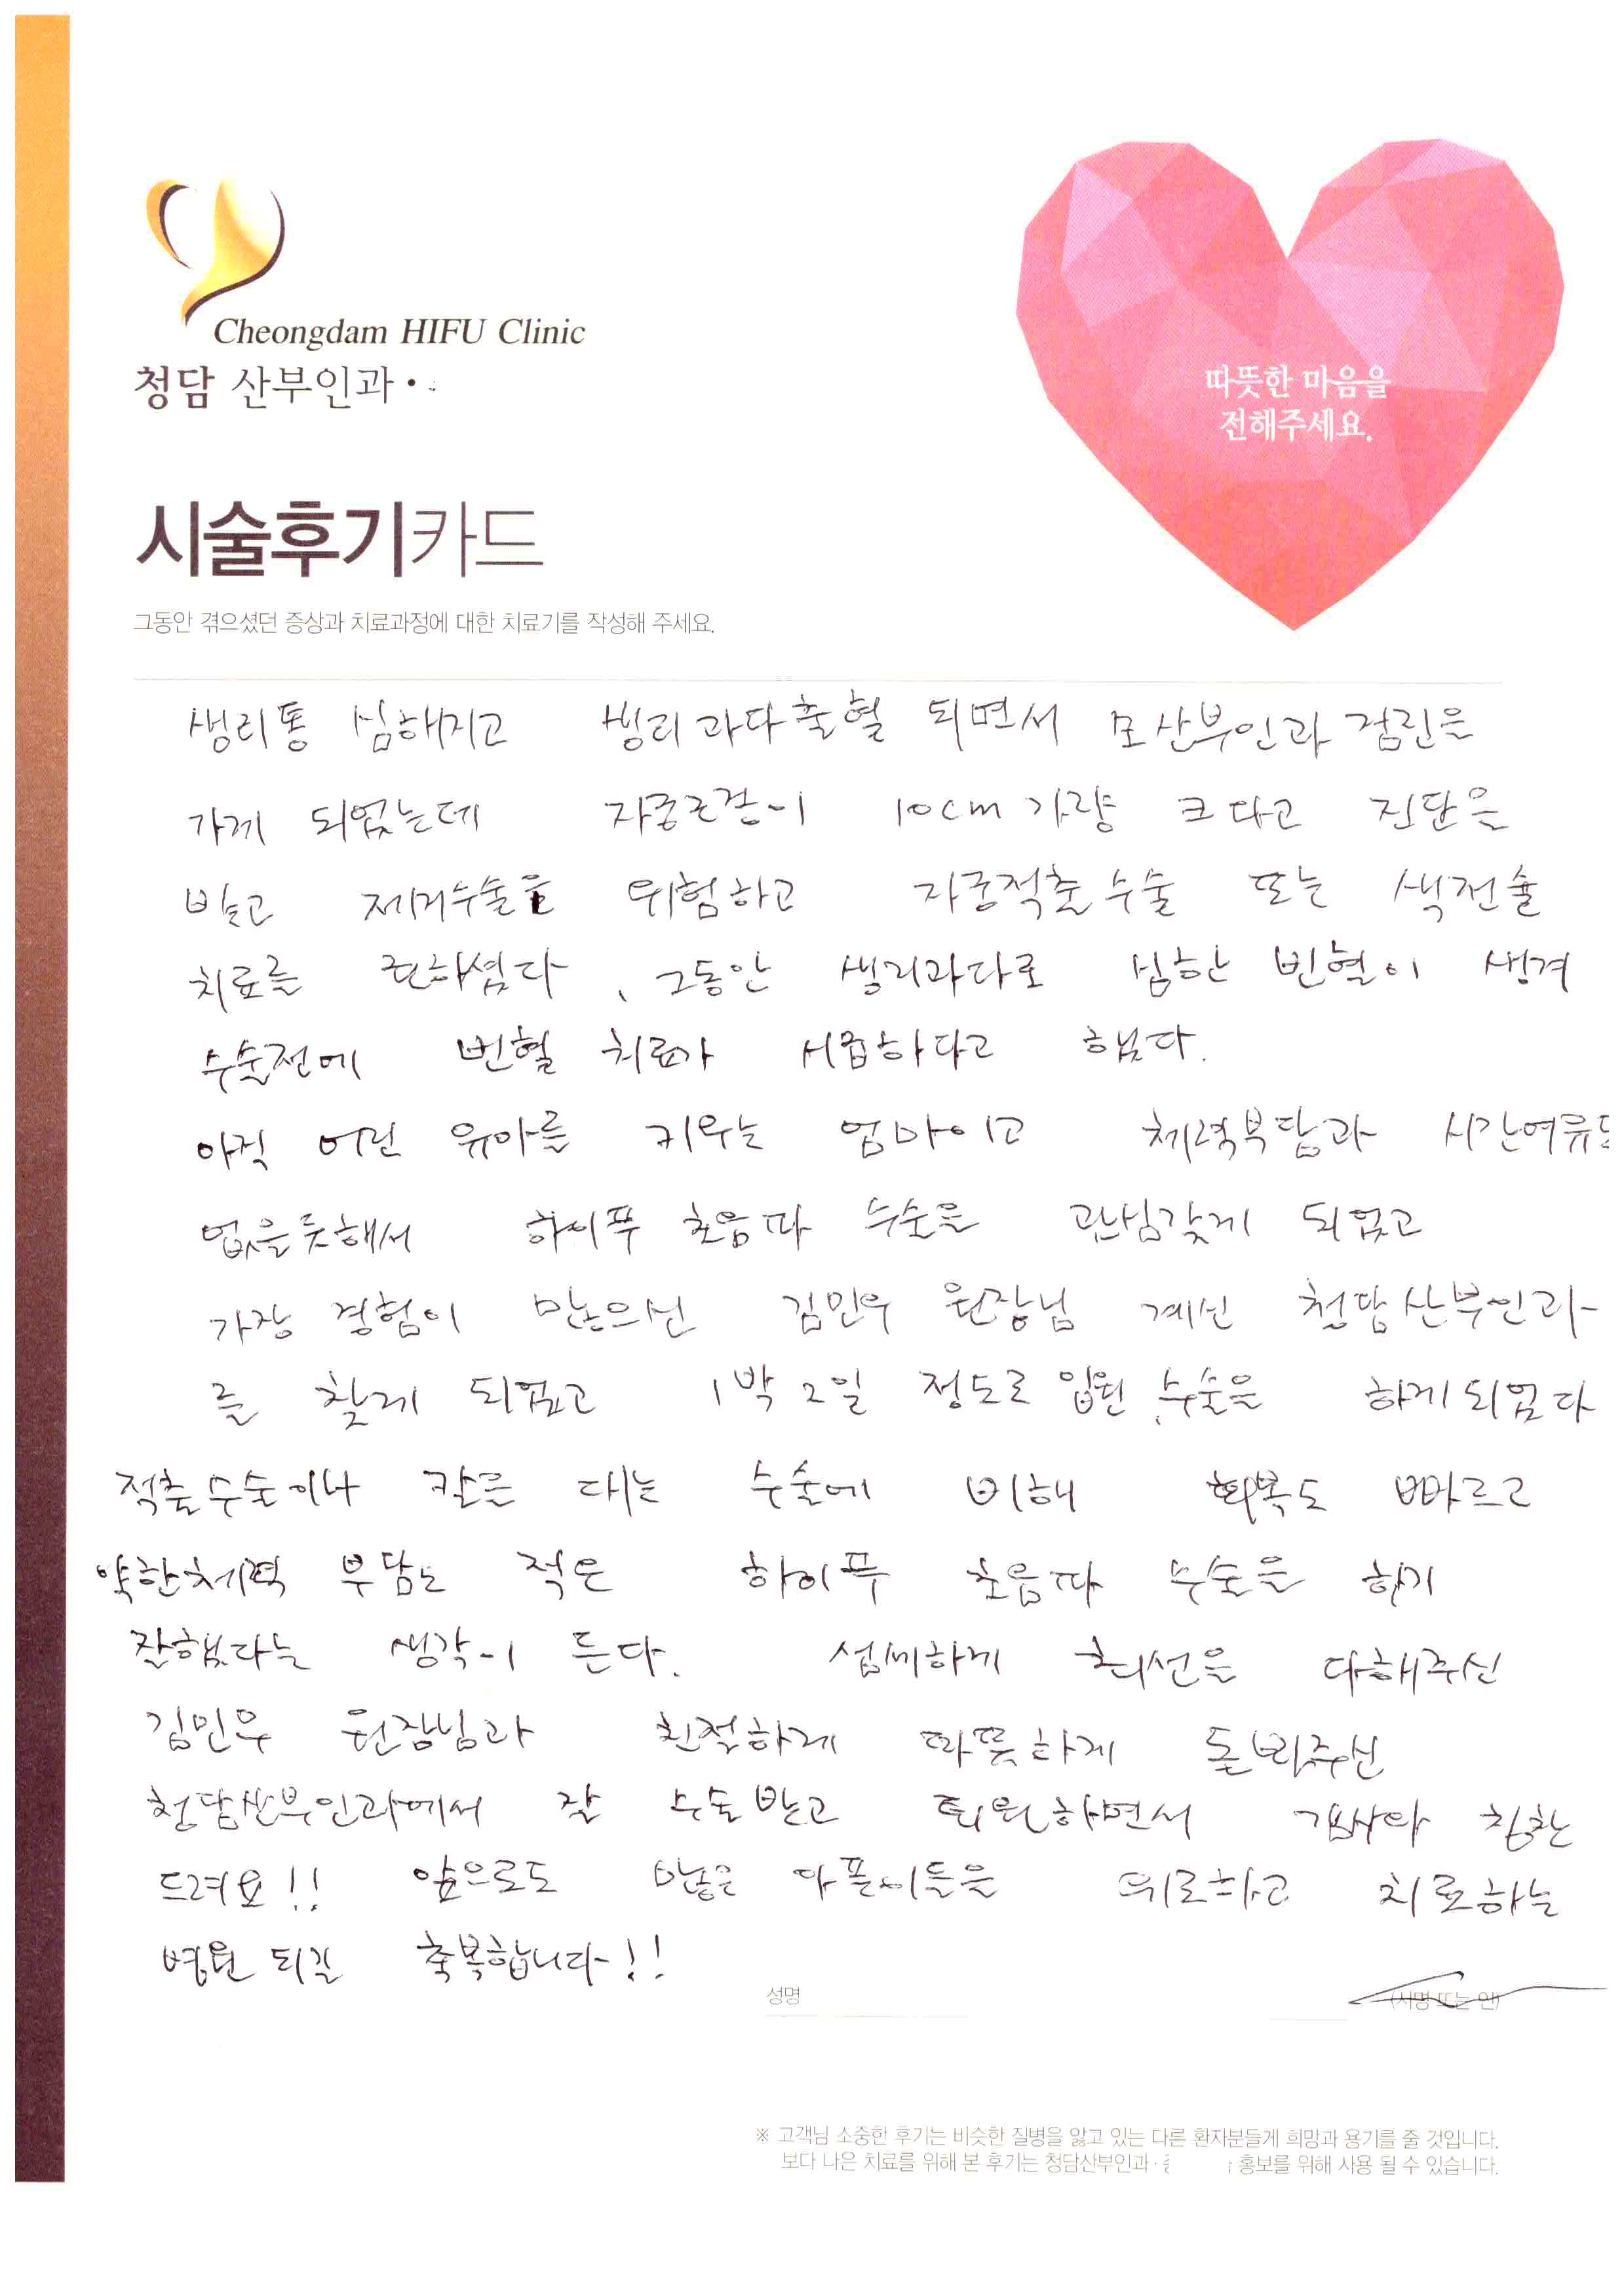 Cheongdam HIFU Clinic
청담 산부인과 •
따뜻한 마음을
전해주세요.
시술후기카드
그동안 겪으셨던 증상과 치료과정에 대한 치료기를 작성해 주세요.
생리통 심해지고 생리과다출혈 되면서 모 산부인과 검진을
가게 되었는데 자궁근종이 10cm 가량 크다고 진단을
받고 제거수술을 위험하고 자궁적출수술 또는 색전술
치료를 권하셨다. 그동안 생리과다로 심한 빈혈이 생겨
수술전에 빈혈 치료가 시급하다고 했다.
아직 어린 유아를 키우는 엄마이고 체력부담과 시간여유도
없을듯해서 하이푸 초음파 수술을 관심갖게 되었고
가장 경험이 많으신 김민우 원장님 계신 청담산부인과
를 찾게 되었고 1박 2일 정도로 입원 수술을 하게되었다
적출수술이나 칼을 대는 수술에 비해 회복도 빠르고
약한체력 부담도 적은 하이푸 초음파 수술을 하기
잘했다는 생각이 든다. 섬세하게 최선을 다해주신
김민우 원장님과 친절하게 따뜻하게 돌봐주신
청담산부인과에서 잘 수술받고 퇴원하면서 감사와 칭찬
드려요!! 앞으로도 많은 아픈이들을 위로하고 치료하는
병원 되길 축복합니다!!
성명 (서명 또는 인)
※ 고객님 소중한 후기는 비슷한 질병을 앓고 있는 다른 환자분들게 희망과 용기를 줄 것입니다.
보다 나은 치료를 위해 본 후기는 청담산부인과 · 홍보를 위해 사용 될 수 있습니다.